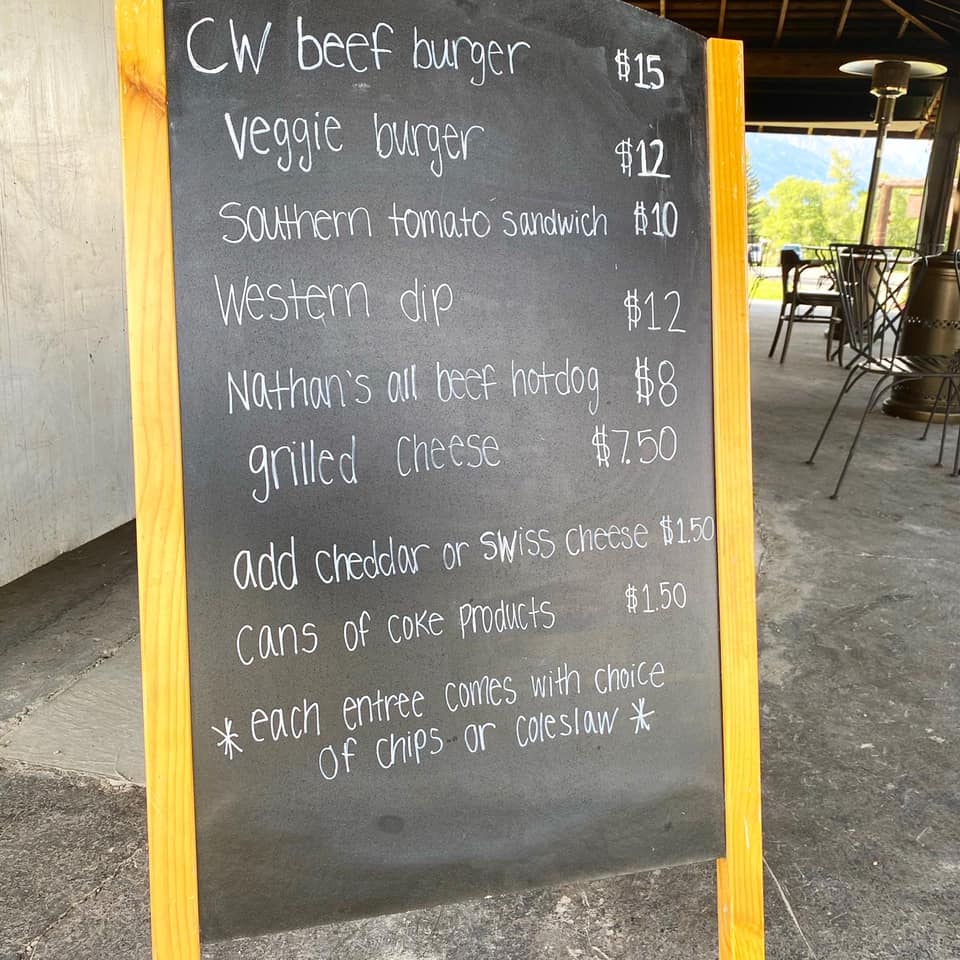 CW beef burger $15
veggie burger $12
Southern tomato sandwich $10
Western dip $12
Nathan's all beef hotdog $8
grilled cheese $7.50
add cheddar or swiss cheese $1.50
cans of coke products $1.50
* each entree comes with choice
of chips or coleslaw *